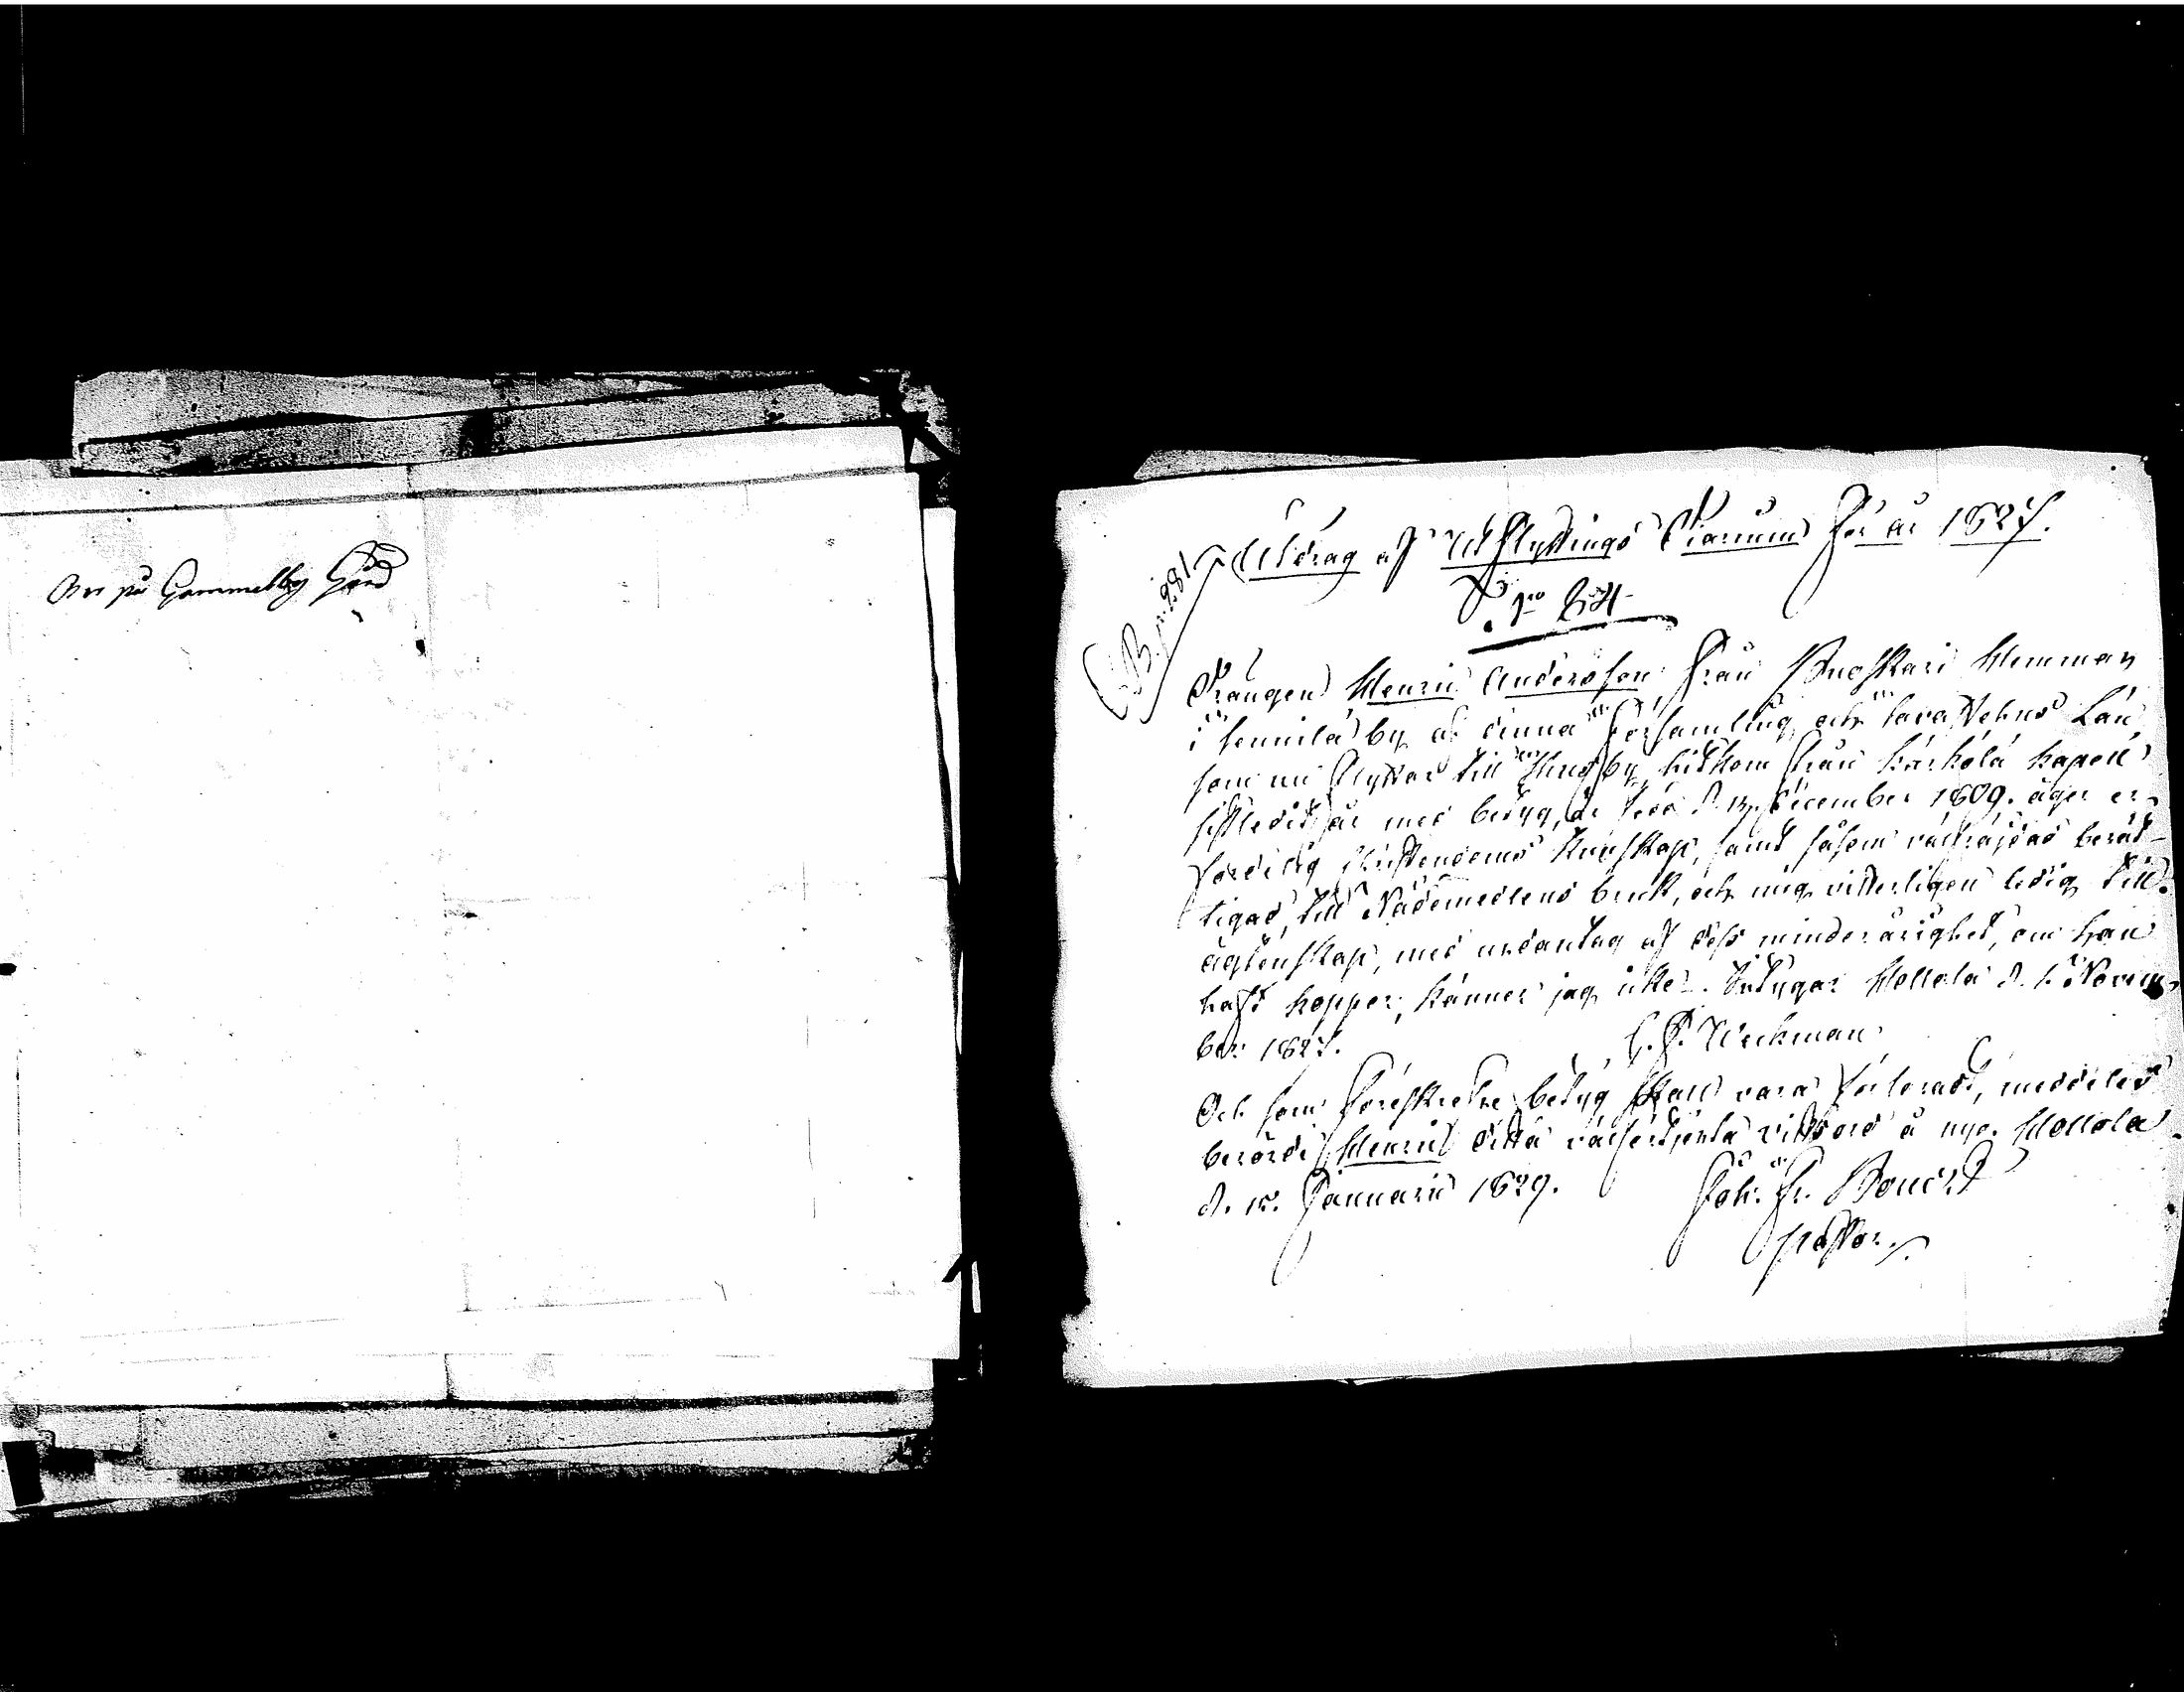 Bor på Gammelby Gård
C. B. p. 281
Utdrag af Utflyttings Diarium för år 1827.
N:o 84
Drängen Henric Andersson från Hemman
i by af denna församling och Tavastehus Län
som nu flyttar till by, hitkom från Kärkölä Kapell
sistledit år med betyg, är född d. 13 December 1809. äger er-
forderlig Christendoms Kunskap, samt såsom väl berät-
tigad till Nådemedlens bruk, och mig vitterligen ledig till
ägtenskap, med undantag af dess minderårighet, om han
haft koppor, känner jag icke. Intygar Hollola d. 1 Novem-
ber 1827. Weckman
Och som föreskrefne betyg skall vara förloradt, meddeles
berörde Henric detta välförtjenta vittsord å nyo. Hollola
d. 12. Januarii 1829. Joh. Fr. Bonsd
pastor.